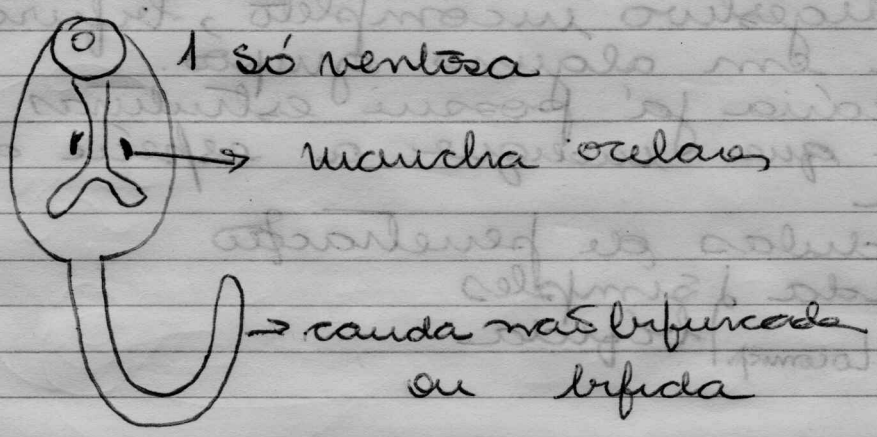 1 só ventosa
mancha ocelares
cauda não bifurcada
ou bífida